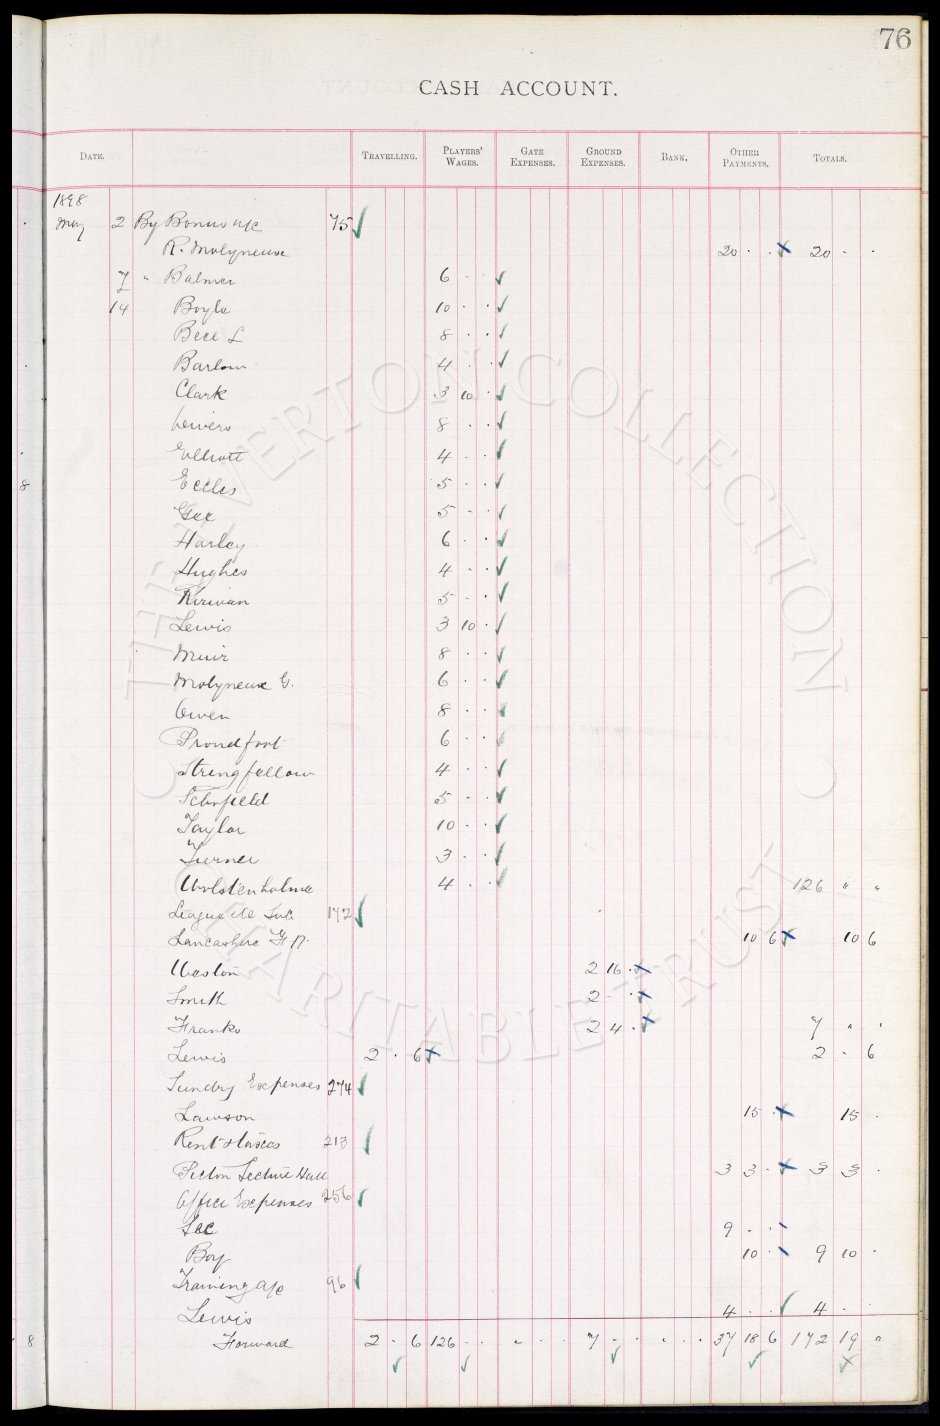 76
CASH ACCOUNT.
DATE. TRAVELLING. PLAYERS' WAGES. GATE EXPENSES. GROUND EXPENSES. BANK. OTHER PAYMENTS. TOTALS.
1898
May 2 By Bonus a/c 75 ✓
R. Molyneux 20 . . 20 . .
7 " Balmer 6 . . ✓
14 Boyle 10 . . ✓
Bell L 8 . . ✓
Barlow 4 . . ✓
Clark 3 10 . ✓
Divers 8 . . ✓
Elliott 4 . . ✓
8 Eccles 5 . . ✓
Gee 5 - . ✓
Harley 6 . . ✓
Hughes 4 . . ✓
Kirwan 5 - . ✓
Lewis 3 10 . ✓
Muir 8 . . ✓
Molyneux G. 6 . . ✓
Owen 8 . . ✓
Proudfoot 6 . . ✓
Stringfellow 4 . . ✓
Schofield 5 . . ✓
Taylor 10 . . ✓
Turner 3 . . ✓
Wolstenholme 4 . . ✓ 126 " "
League 172 ✓
Lancashire F A. 10 6 10 6
Weston 2 16 .
Smith 2 - .
Franks 2 4 . 7 " .
Lewis 2 . 6 2 . 6
Sundry Expenses 274 ✓
Lawson 15 . 15 .
Rent & taxes 213 ✓
Picton Lecture Hall 3 3 . 3 3 .
Office Expenses 256 ✓
Sec 9 . .
Boy 10 . 9 10 .
Training a/c 96 ✓
Lewis 4 . . ✓ 4 . .
8 Forward 2 . 6 126 . . " . . 7 - . " . . 37 18 6 172 19 "
THE EVERTON COLLECTION
CHARITABLE TRUST